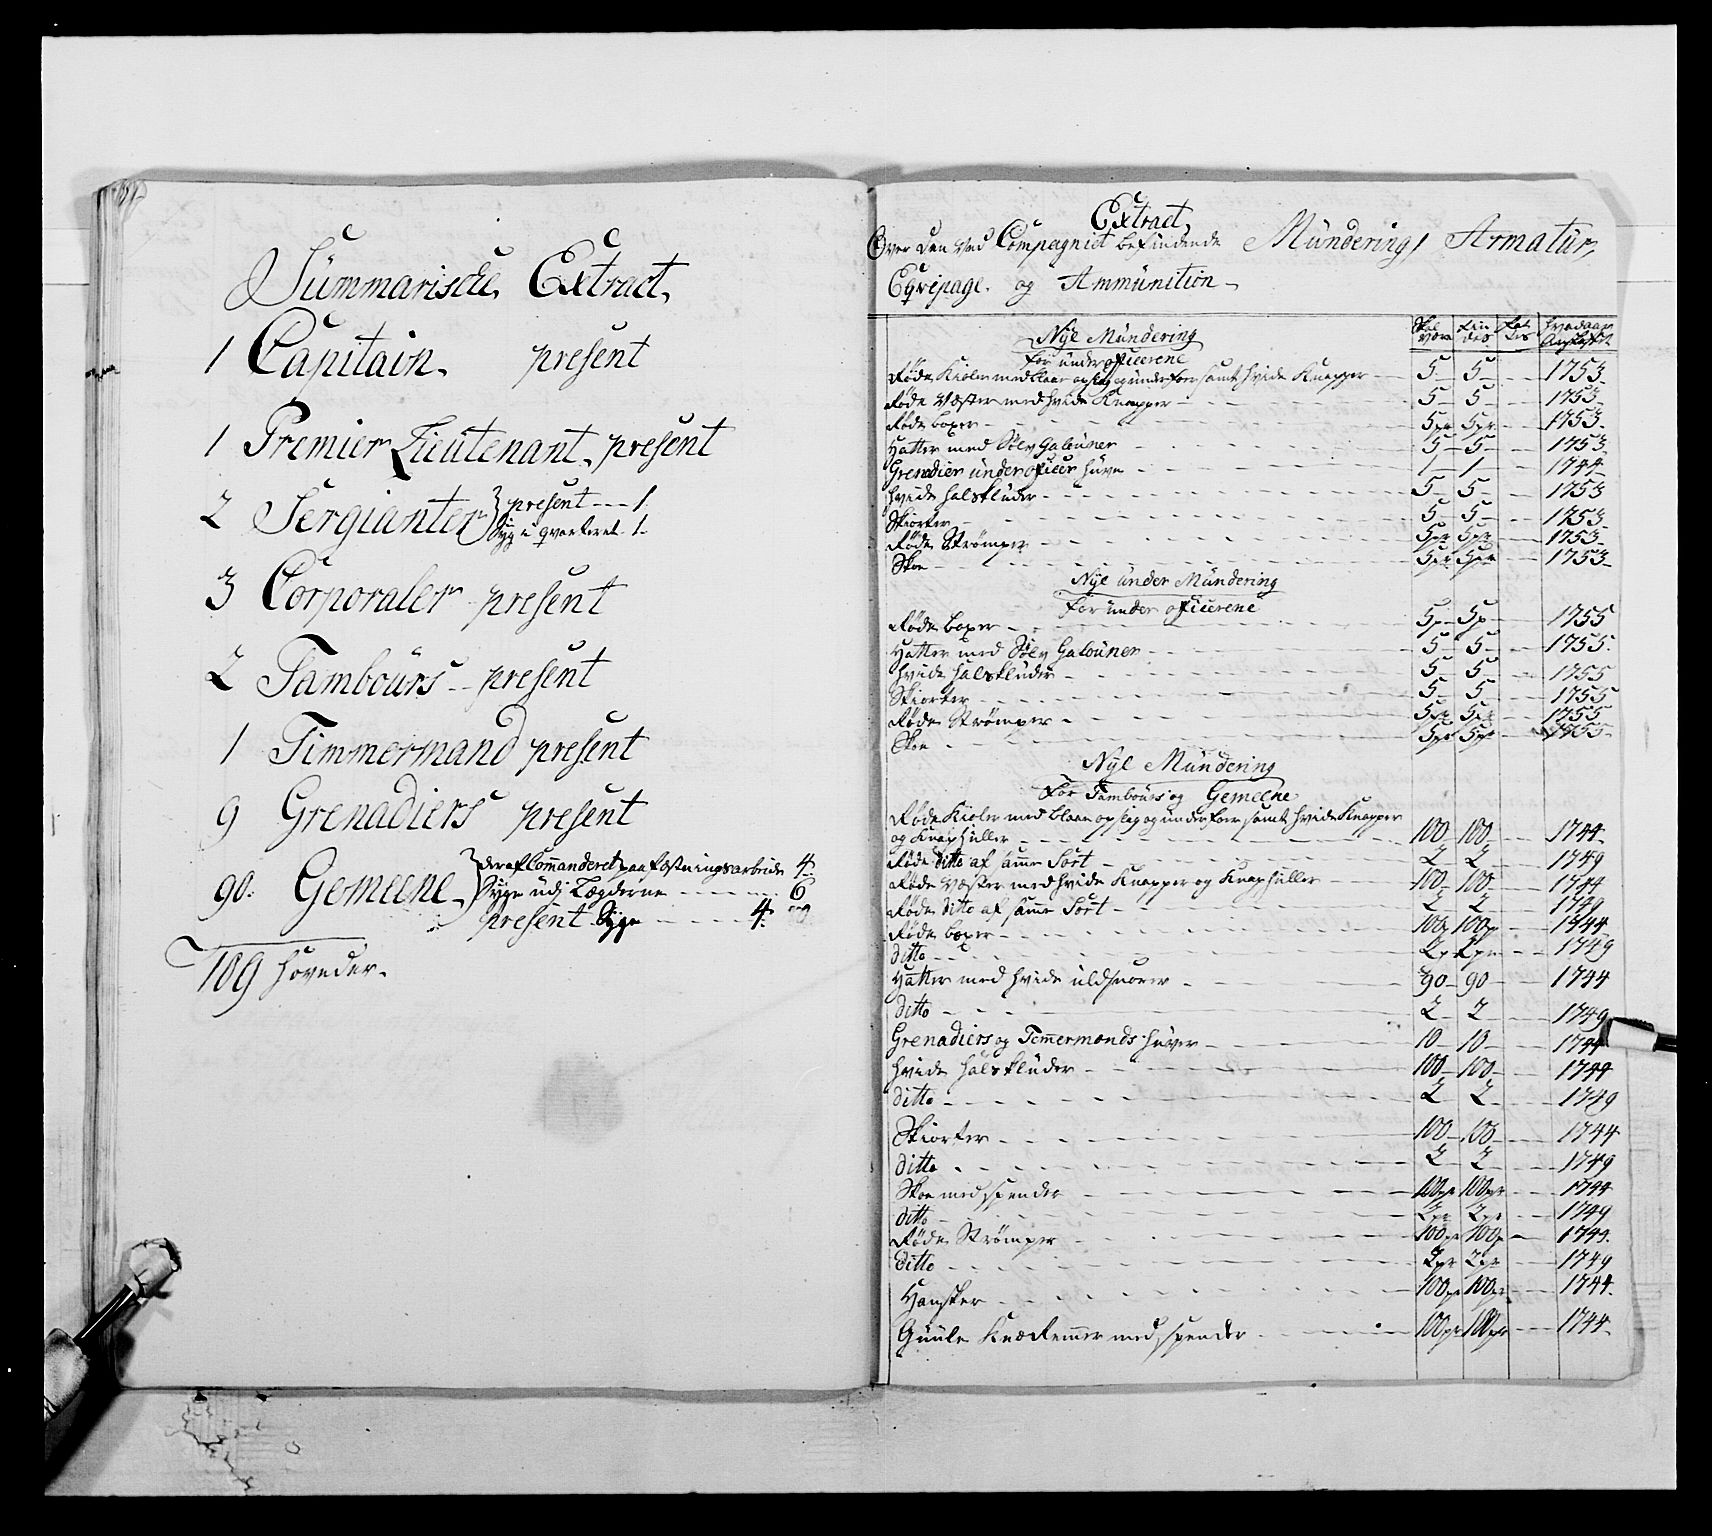 Summarische Extract,
1 Capitain. present
1 Premier Lieutenant. present
2 Sergianter present --- 1.
Syg i qvarteret. 1.
3 Corporaler present
2 Tambours -- present
1 Timmermand present
9 Grenadiers present
90. Gemeene deraf Commanderet paa festningsarbeide 4.
Syge udj Legderne 6
present Syge 4.
109 hoveder.
Extract,
Over den ved Compagniet befindende Mündering, Armatur,
Eqvipage. og Ammünition
Skal være
Fin des
Fat tes
hvad aar
Nye Mündering
for underofficerene
Røde Kioler med blaae opslag og underfoer samt hvide Knapper 5 5 1753
Røde Vester med hvide Knapper 5 5 1753
Røde boxer 5pr 5pr 1753
Hatter med Sølv Galouner 5 5 1753
Grenadier underofficer huve 1 1 1744
hvide halsklüder 5 5 1753
Skiorter 5 5 1753
Røde Strømper 5pr 5pr 1753
Skoe 5pr 5pr 1753
Nye under Mündering
For under officerene
Røde boxer 5p 5p 1755
Hatter med Sølv Galouner 5 5 1755
hvide halsklüder 5 5 1755
Skiorter 5 5 1755
Røde Strømper 5pr 5pr 1755
Skoe 5pr 5pr 1755
Nye Mündering
For Tambours og Gemeene
Røde Kioler med blaae opslag og underfoer samt hvide Knapper
og Knaphuller 100 100 1744
Røde ditto af samme Sort 2 2 1749
Røde Vester med hvide Knapper og Knaphuller 100 100 1744
Røde ditto af samme Sort 2 2 1749
Røde boxer 100p 100p 1744
ditto 2p 2pr 1749
Hatter med hvide uldsnorer 90 90 1744
ditto 2 2 1749
Grenadiers og Temermands huver 10 10 1744
hvide halsklüder 100 100 1744
ditto 2 2 1749
Skiorter 100 100 1744
ditto 2 2 1749
Skoe med spender 100pr 100pr 1744
ditto 2pr 2pr 1749
Røde Strømper 100pr 100p 1744
ditto 2pr 2pr 1749
Hansker 100pr 100pr 1744
Guule Knæremmer med spender 100pr 100pr 1744